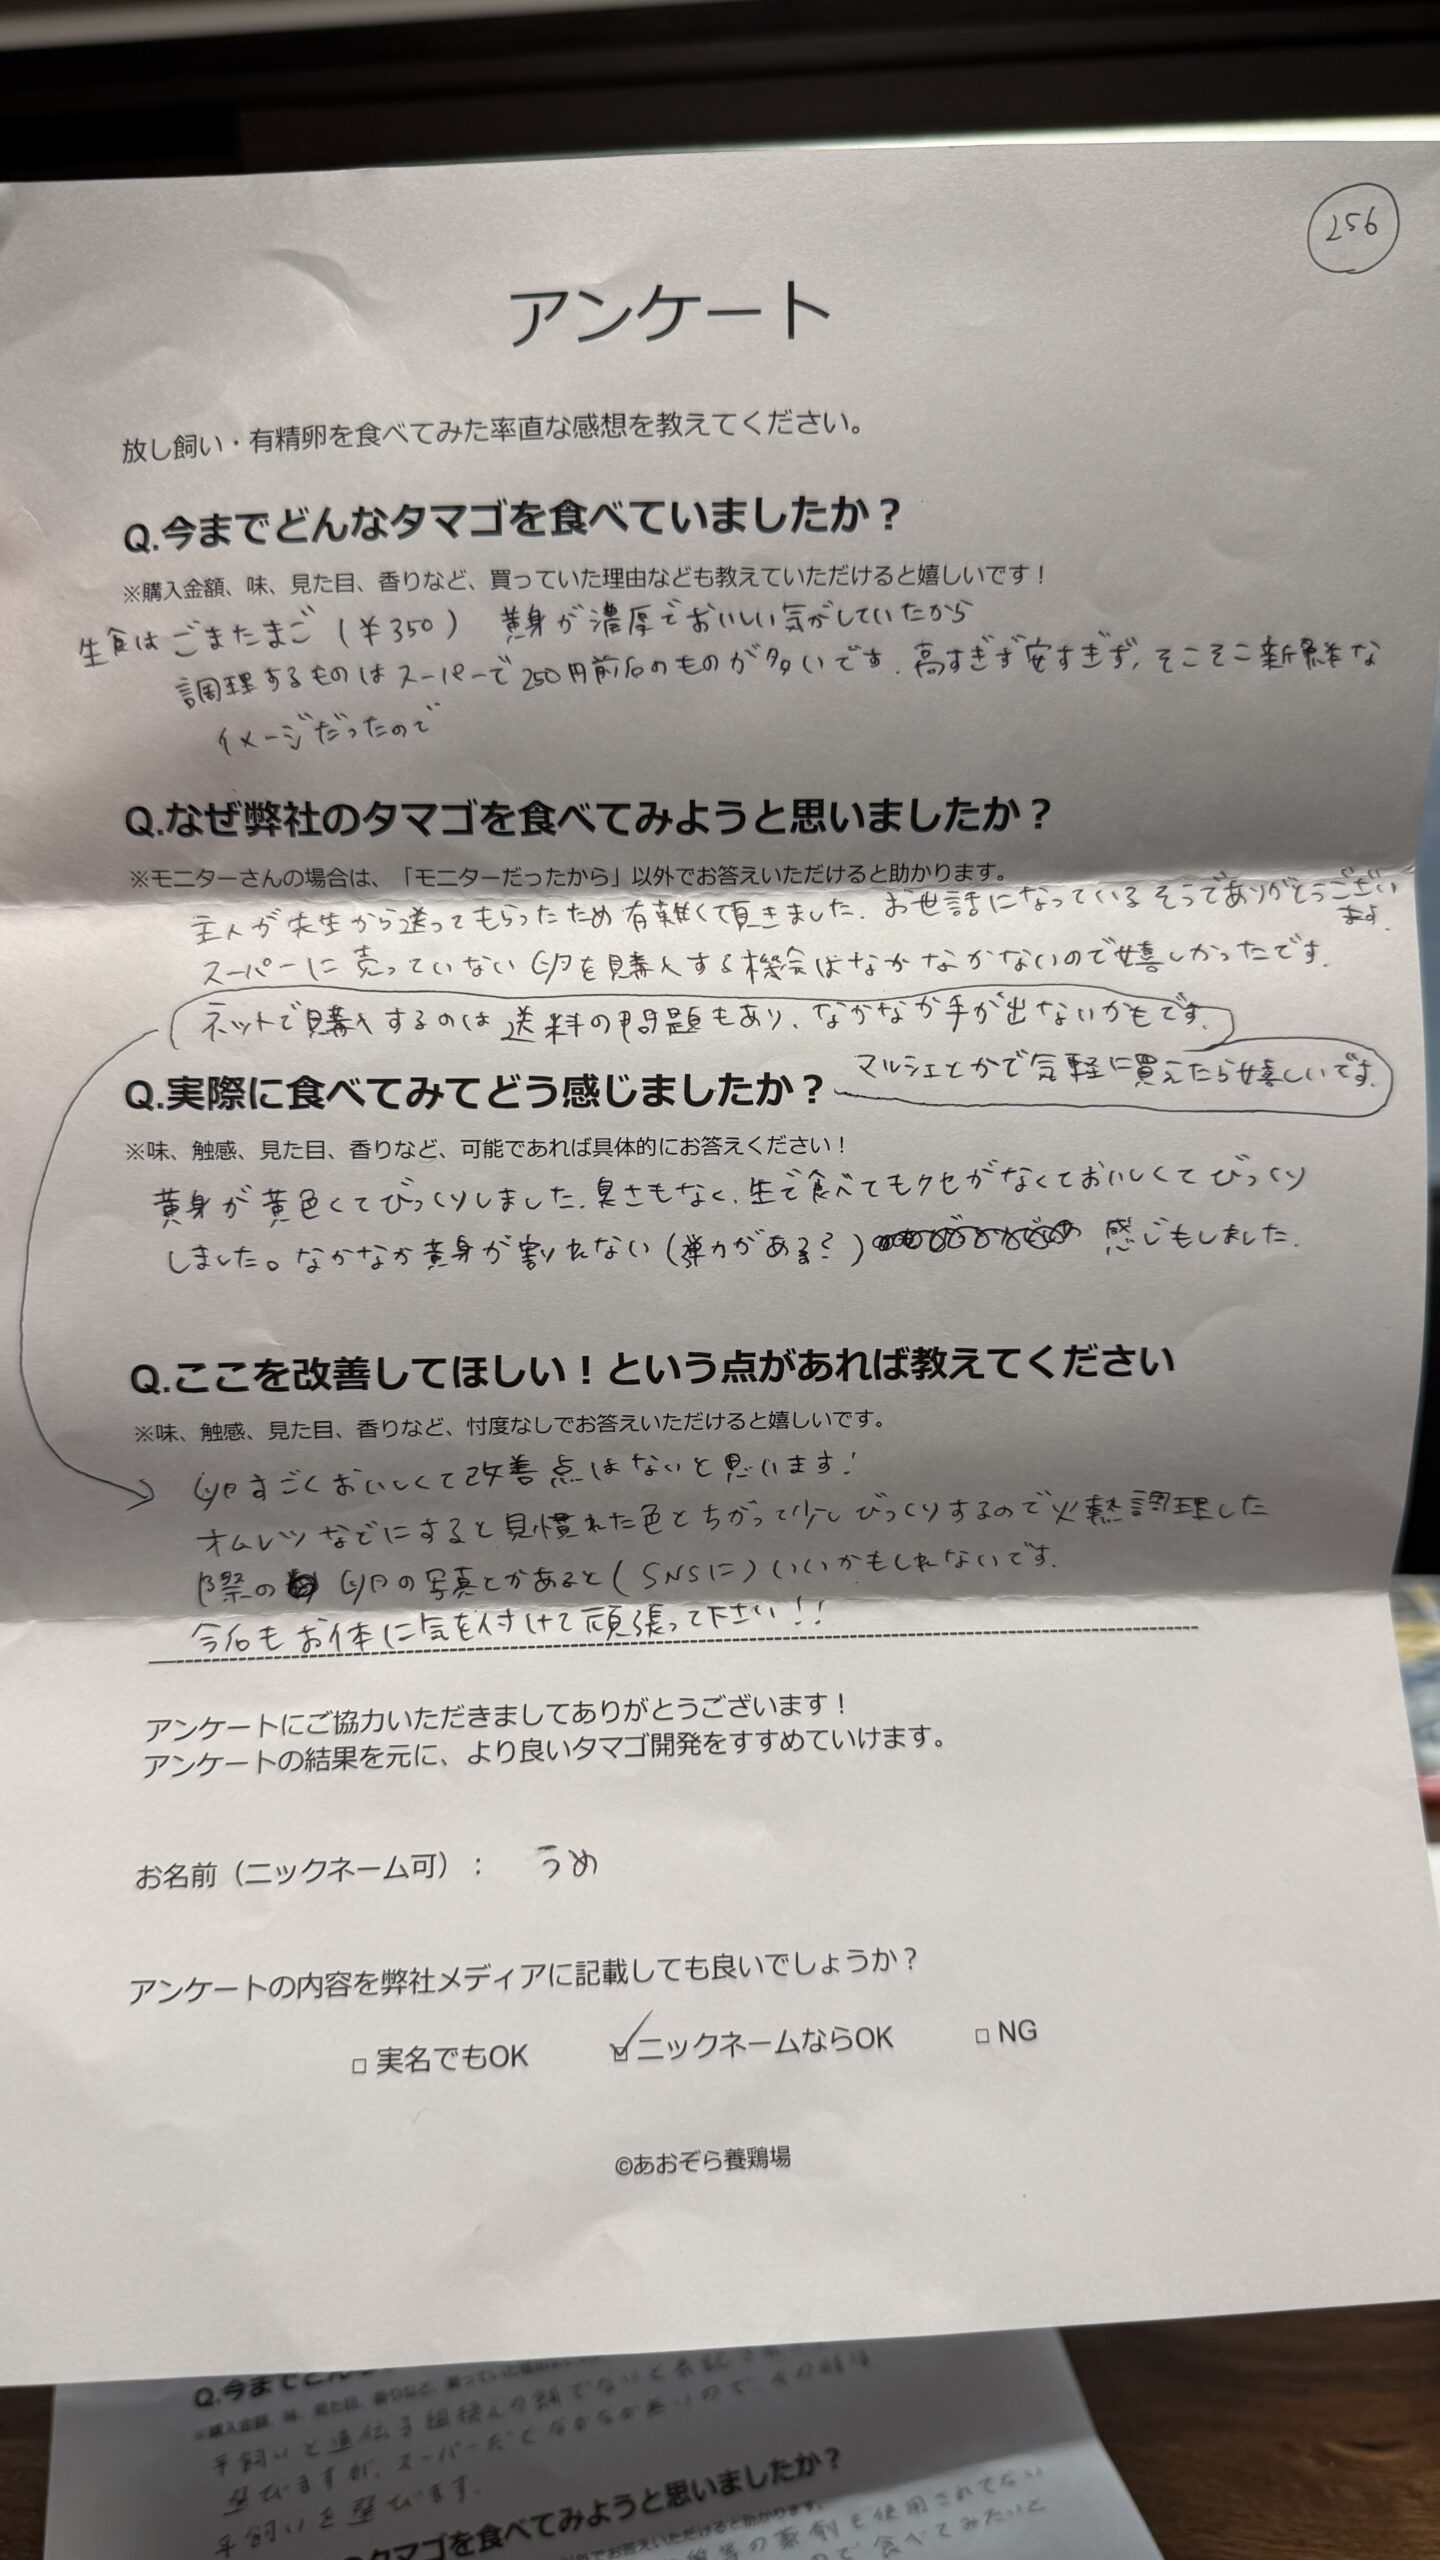 256
アンケート
放し飼い・有精卵を食べてみた率直な感想を教えてください。
Q.今までどんなタマゴを食べていましたか？
※購入金額、味、見た目、香りなど、買っていた理由なども教えていただけると嬉しいです！
生食はごまたまご(¥350) 黄身が濃厚でおいしい気がしていたから
調理するものはスーパーで250円前后のものが多いです.高すぎず安すぎず,そこそこ新鮮な
イメージだったので
Q.なぜ弊社のタマゴを食べてみようと思いましたか？
※モニターさんの場合は、「モニターだったから」以外でお答えいただけると助かります。
主人が先生から送ってもらったため有難く頂きました.お世話になっているそうでありがとうござい
ます.
スーパーに売っていない卵を購入する機会はなかなかないので嬉しかったです.
ネットで購入するのは送料の問題もあり、なかなか手が出ないかもです.
マルシェとかで気軽に買えたら嬉しいです.
Q.実際に食べてみてどう感じましたか？
※味、触感、見た目、香りなど、可能であれば具体的にお答えください！
黄身が黄色くてびっくりしました.臭さもなく.生で食べてもクセがなくておいしくてびっくり
しました。なかなか黄身が割れない(弾力がある?) 感じもしました.
Q.ここを改善してほしい！という点があれば教えてください
※味、触感、見た目、香りなど、忖度なしでお答えいただけると嬉しいです。
卵すごくおいしくて改善点はないと思います!
オムレツなどにすると見慣れた色とちがって少しびっくりするので火熱調理した
際の 卵の写真とかあると(SNSに)いいかもしれないです.
今后もお体に気を付けて頑張って下さい!!
アンケートにご協力いただきましてありがとうございます！
アンケートの結果を元に、より良いタマゴ開発をすすめていけます。
お名前（ニックネーム可）： うめ
アンケートの内容を弊社メディアに記載しても良いでしょうか？
□ 実名でもOK ☑ ニックネームならOK □ NG
©あおぞら養鶏場
平飼いと遺伝子組換えの餌でないと表記され
選びますが、スーパーだとなかなか無いので、その時は
平飼いを選びます.
タマゴを食べてみようと思いましたか？